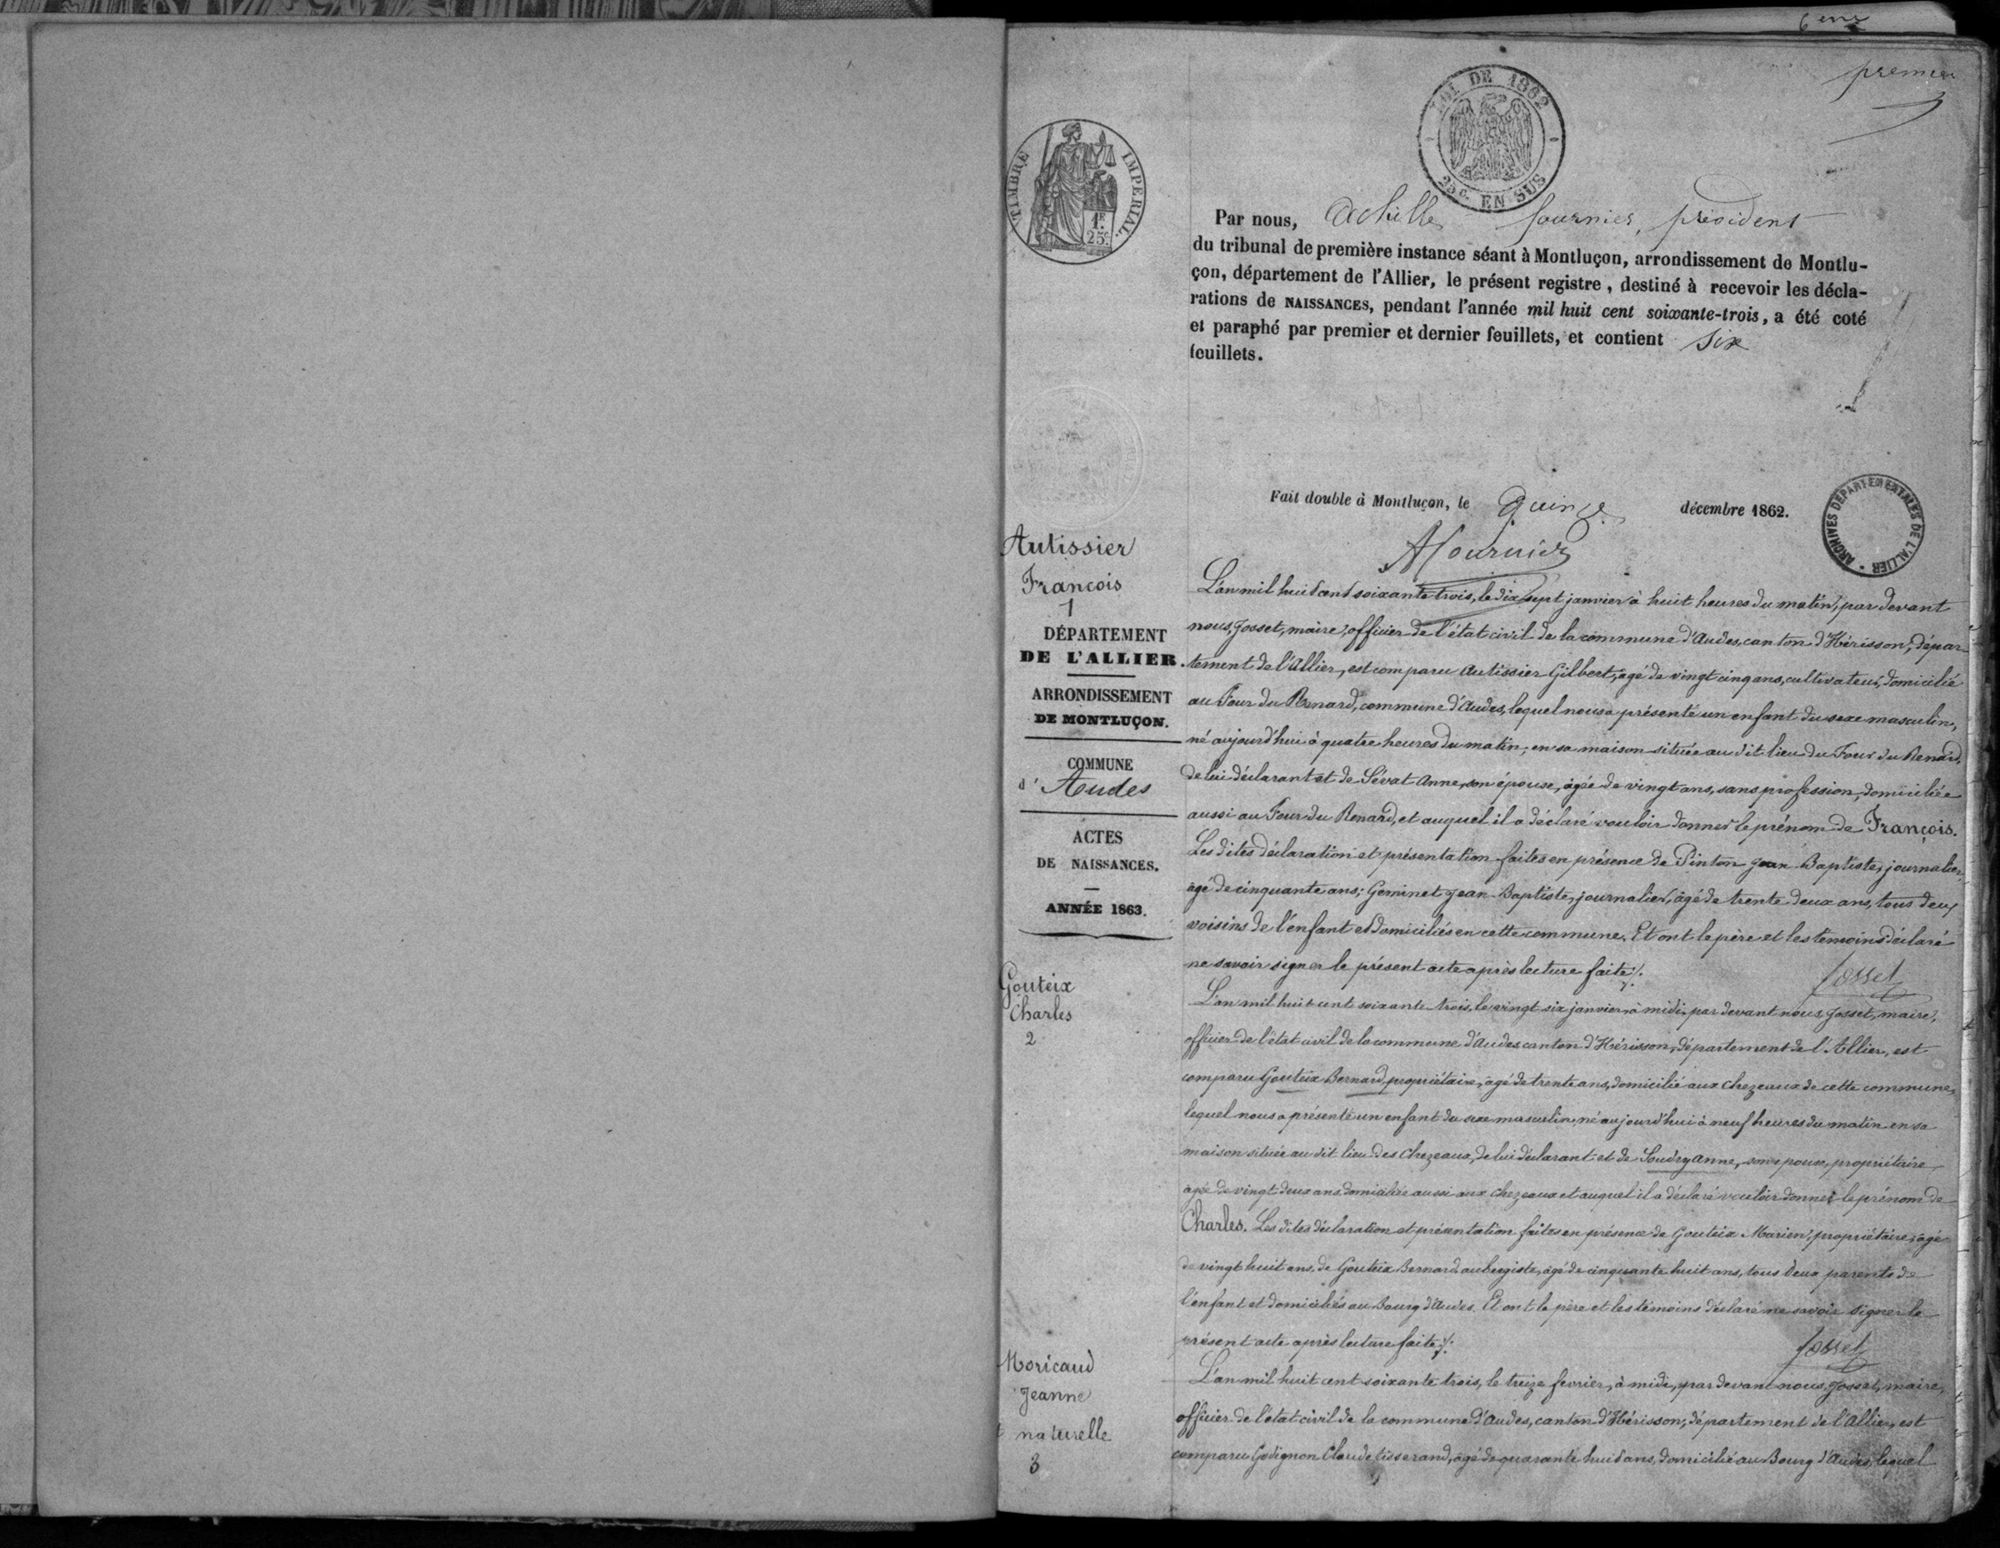 6eme
premier
LOI DE 1862
25c. EN SUS
TIMBRE IMPERIAL.
1F.
25c.
Par nous, Achille Fournier, président
du tribunal de première instance séant à Montluçon, arrondissement de Montlu-
çon, département de l'Allier, le présent registre, destiné à recevoir les décla-
rations de NAISSANCES, pendant l'année mil huit cent soixante-trois, a été coté
et paraphé par premier et dernier feuillets, et contient six
feuillets.
Fait double à Montluçon, le quinze décembre 1862.
ARCHIVES DÉPARTEMENTALES DE L'ALLIER
AFournier
Autissier
François
1
DÉPARTEMENT
DE L'ALLIER.
ARRONDISSEMENT
DE MONTLUÇON.
COMMUNE
d'Audes
ACTES
DE NAISSANCES.
ANNÉE 1863.
L'an mil huit cent soixante trois, le dix sept janvier à huit heures du matin, par devant
nous, Josset, maire, officier de l'état civil de la commune d'Audes, canton d'Hérisson, dépar
tement de l'Allier, est comparu Autissier Gilbert, agé de vingt cinq ans, cultivateur, domicilié
au Four du Renard, commune d'Audes, lequel nous a présenté un enfant du sexe masculin,
né aujourd'hui à quatre heures du matin, en sa maison située au dit lieu du Four du Renard,
de lui déclarant et de Sévat Anne, son épouse, agée de vingt ans, sans profession, domiciliée
aussi au Four du Renard, et auquel il a déclaré vouloir donner le prénom de François.
Les dites déclaration et présentation faites en présence de Pinton Jean Baptiste, journalier,
agé de cinquante ans; Geminet Jean-Baptiste, journalier, agé de trente deux ans, tous deux
voisins de l'enfant et domiciliés en cette commune. Et ont le père et les témoins déclaré
ne savoir signer le présent acte après lecture faite ./.
Josset
Gouteix
Charles
2
L'an mil huit cent soixante trois, le vingt six janvier, à midi, par devant nous, Josset, maire,
officier de l'état civil de la commune d'Audes canton d'Hérisson, département de l'Allier, est
comparu Gouteix Bernard, propriétaire, agé de trente ans, domicilié aux Chezeaux de cette commune,
lequel nous a présenté un enfant du sexe masculin, né aujourd'hui à neuf heures du matin en sa
maison située au dit lieu des Chezeaux, de lui déclarant et de Soudry Anne, son épouse, propriétaire,
agée de vingt deux ans, domiciliée aussi aux Chezeaux et auquel il a déclaré vouloir donner le prénom de
Charles. Les dites déclaration et présentation faites en présence de Gouteix Marien, propriétaire, agé
de vingt huit ans, de Gouteix Bernard aubergiste, agé de cinquante huit ans, tous deux parents de
l'enfant et domiciliés au Bourg d'Audes. Et ont le père et les témoins déclaré ne savoir signer le
présent acte après lecture faite ./.
Josset
Moricaud
Jeanne
naturelle
3
L'an mil huit cent soixante trois, le treize février, à midi, par devant nous, Josset, maire,
officier de l'état civil de la commune d'Audes, canton d'Hérisson, département de l'Allier, est
comparu Godignon Claude tisserand, agé de quarante huit ans, domicilié au Bourg d'Audes, lequel